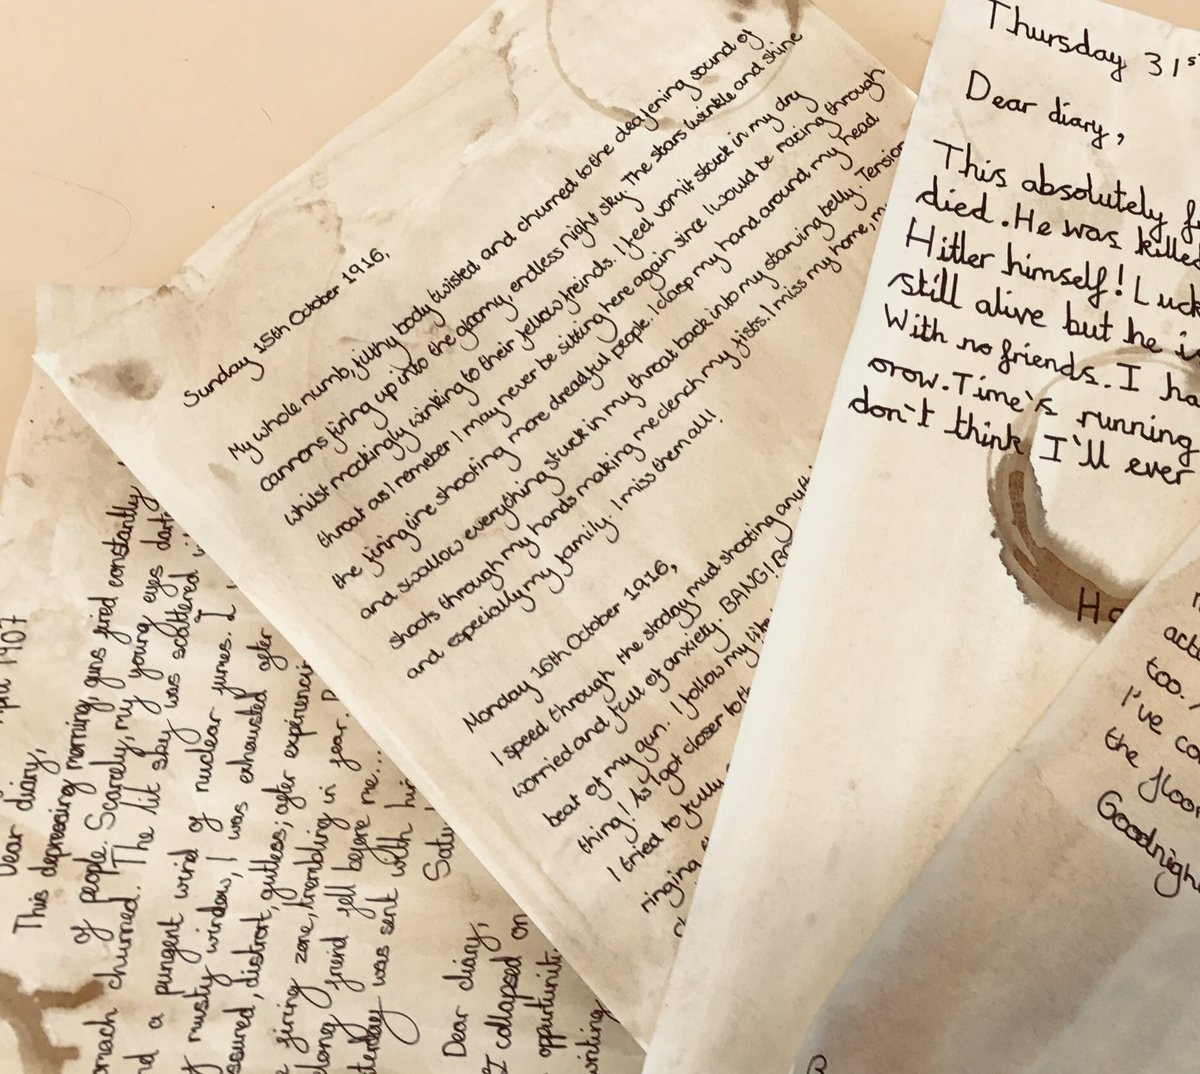 Sunday 15th October 1916,
My whole numb, filthy body twisted and churned to the deafening sound of
cannons firing up into the gloomy, endless night sky. The stars twinkle and shine
whilst mockingly winking to their fellow freinds. I feel vomit stuck in my dry
throat as I remeber I may never be sitting here again since I would be racing through
the firing line shooting more dreadful people. I clasp my hand around my head
and swallow everything stuck in my throat back into my starving belly. Tension
shoots through my hands making me clench my fists. I miss my home,
and especially my family. I miss them all!
Monday 16th October 1916,
I speed through the stodgy mud shooting
worried and full of anxiety. BANG!
beat of my gun. I follow my
thing! As I got closer to
I tried to fully
ringing
Thursday 31st
Dear diary,
This absolutely
died. He was killed
Hitler himself! Luck
still alive but he
With no friends. I ha
orow. Time's running
don't think I'll ever
Ho
too.
I've
the floor
Goodnigh
1907
Dear diary,
This depressing morning, guns fired constantly
of people. Scarely, my young eyes dart
omach churned. The lit sky was scattered
nd a pungent wind of nuclear fumes. I
rusty window, I was exhausted after
ssured, distraot, gutless; after experiencin
firing zone, trembling in fear.
elong friend fell before me...
terday was sent with hi
Satu
Dear diary,
I collapsed on
oppurtunit
writing